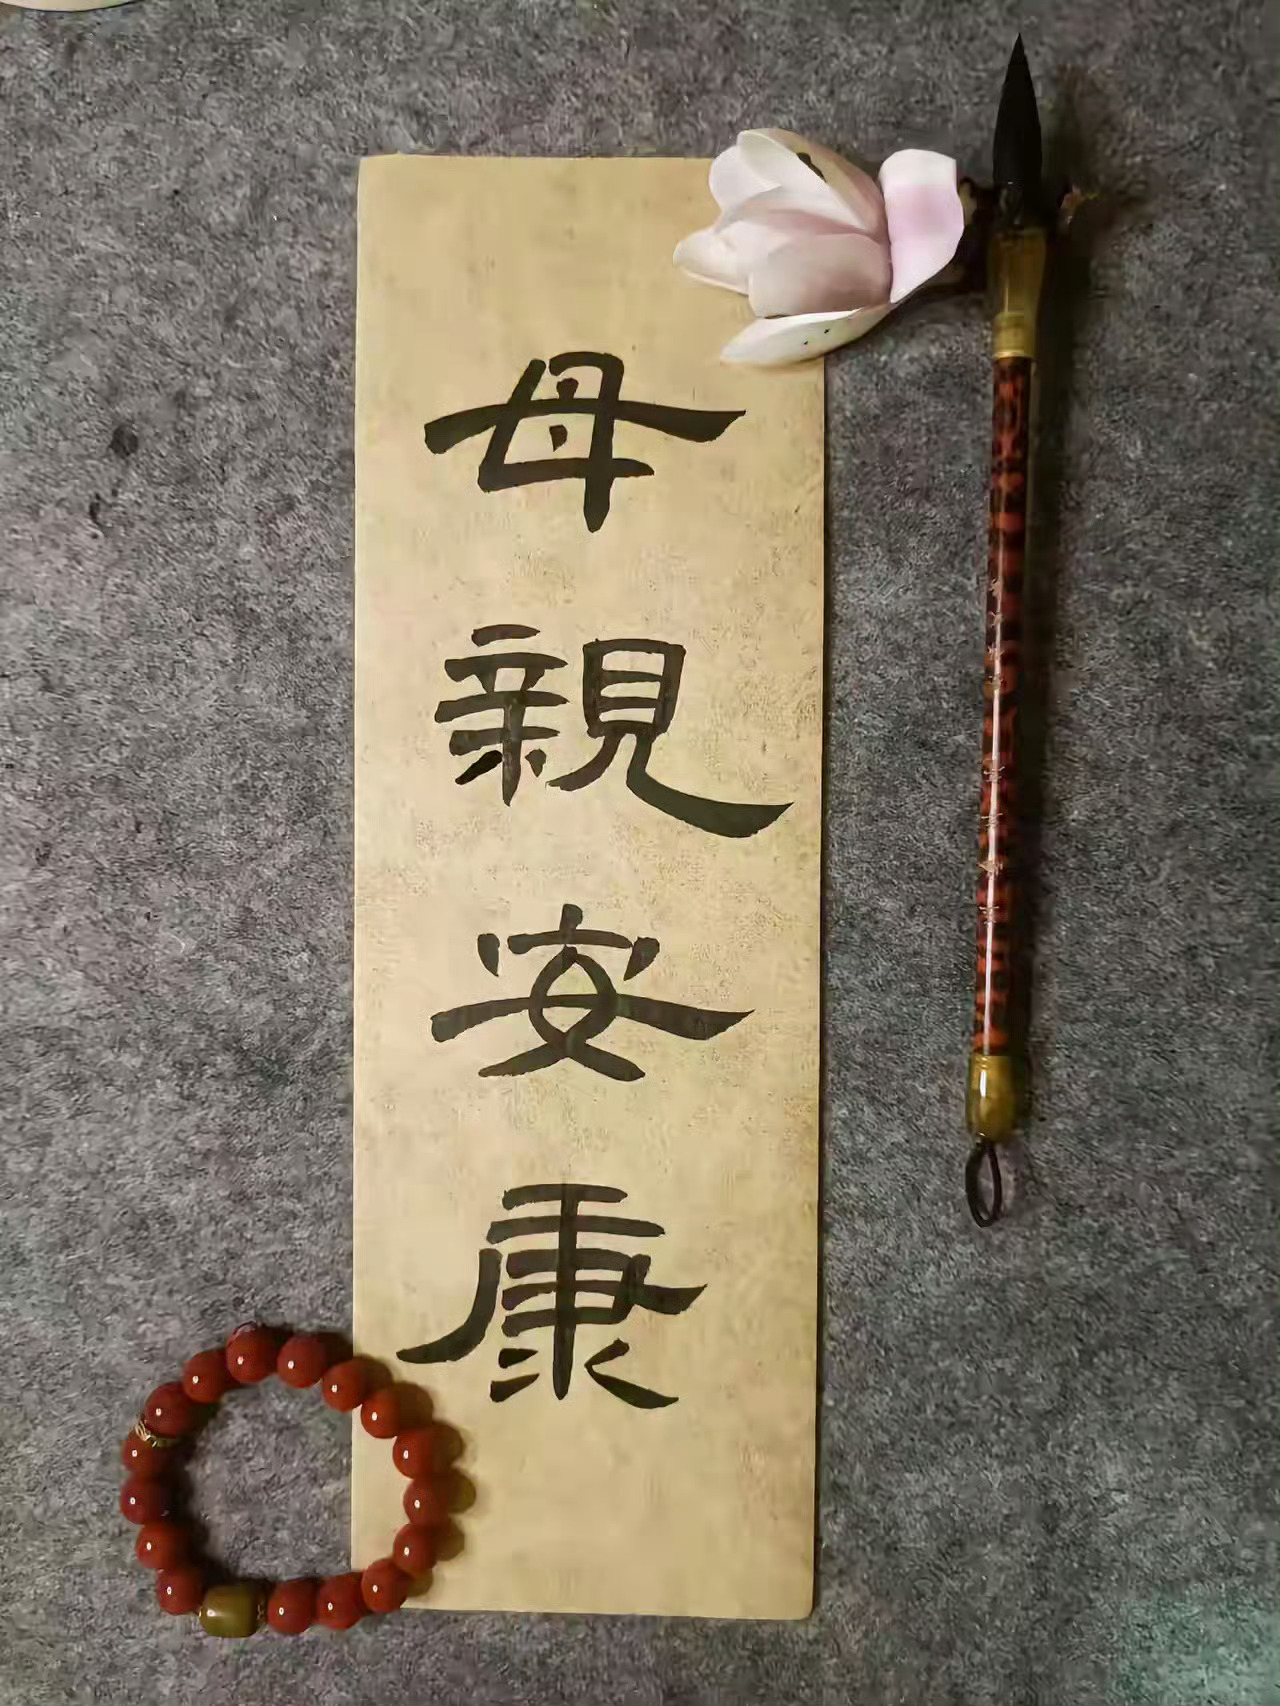 母親安康